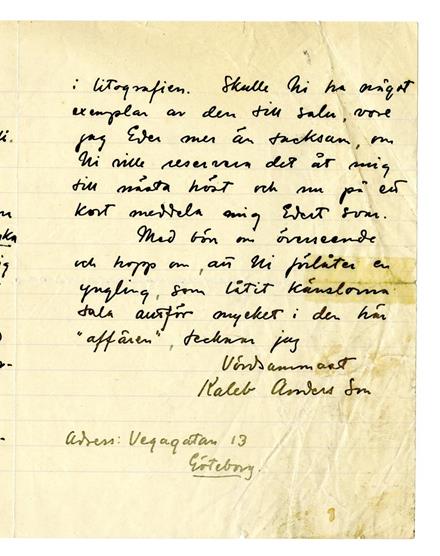 i litografien. Skulle Ni ha något
exemplar av den till salu, vore
jag Eder mer än tacksam, om
Ni ville reservera det åt mig
till nästa höst och nu på ett
kort meddela mig Edert svar.
Med bön om överseende
och hopp om, att Ni förlåter en
yngling, som låtit känslorna
tala allt för mycket i den här
"affären", tecknar jag
Vördsammast
Kaleb Anders Son
Adress: Vegagatan 13
Göteborg.